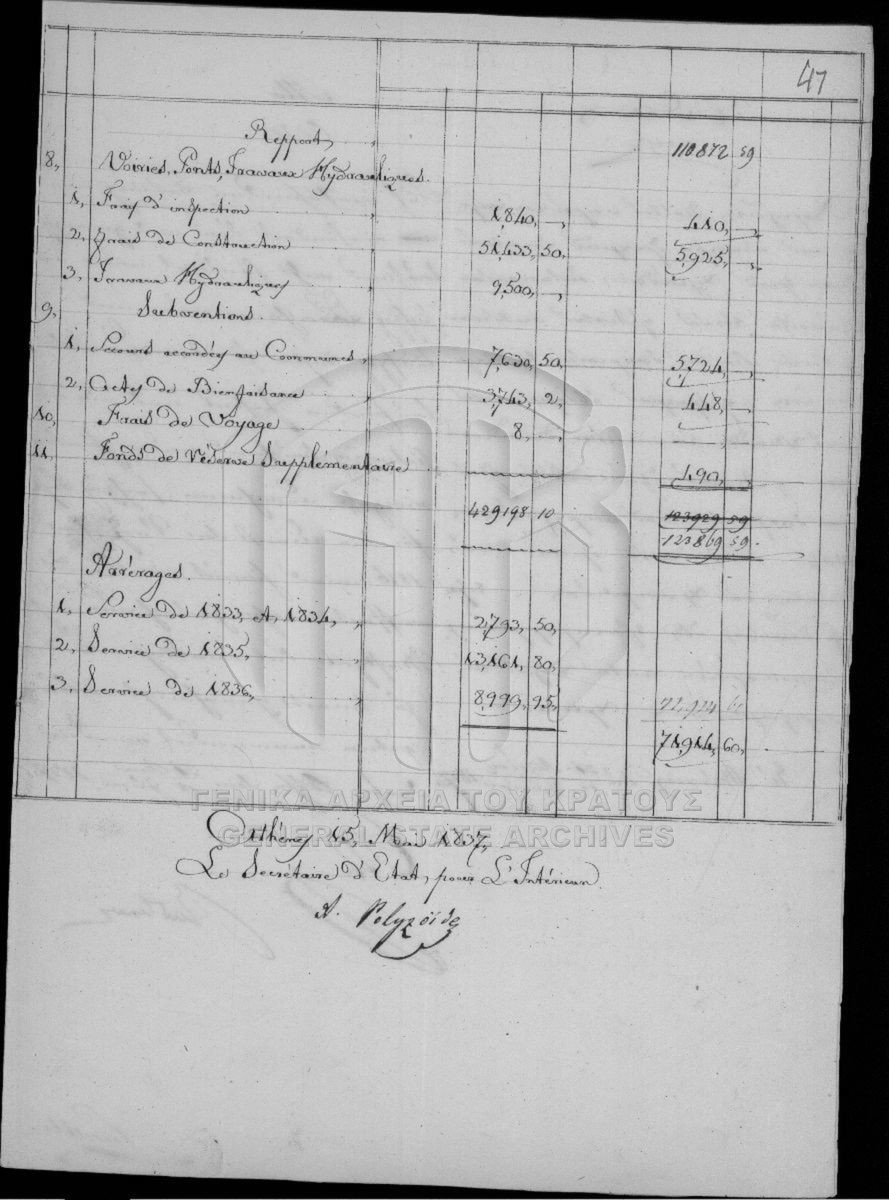 47
Report, 110872 59
8, Voiries, Ponts, Travaux Hydrauliques.
1, Frais d'inspection " 1,840, — 410, —
2, Frais de Construction " 51,433, 50, 5,925, —
3, Travaux Hydrauliques " 9,500, —
9, Subventions.
1, Secours accordés au Communes " 7,630, 50, 5,724, —
2, Actes de Bienfaisance " 3,743, 2, 448, —
10, Frais de Voyage 8, — —
11, Fonds de Réserve Supplémentaire 490, —
429198 10 123929 59
123869 59.
Arrérages.
1, Service de 1833, et, 1834, " 2,793, 50,
2, Service de 1835, " 13,161, 80,
3, Service de 1836, " 8,999, 95, 72,924
71,914, 60,
ΓΕΝΙΚΑ ΑΡΧΕΙΑ ΤΟΥ ΚΡΑΤΟΥΣ
GENERAL STATE ARCHIVES
D'Athénes 15, Mai 1837,
Le Secrétaire d'Etat, pour L'Intérieur.
A. Polyzoïdes